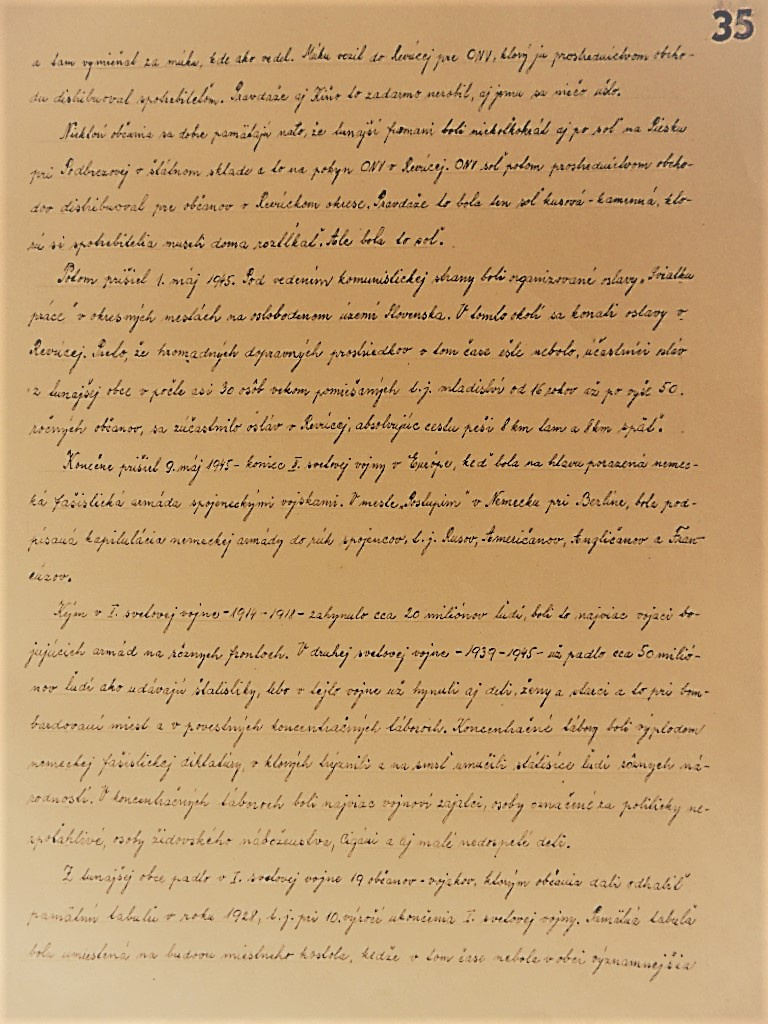 35
a tam vymieňal za múku, kde ako vedel. Múku vozil do Revúcej pre ONV, ktorý ju prostredníctvom obcho-
du distribuoval spotrebiteľom. Pravdaže aj Kíňo to zadarmo nerobil, aj jemu sa niečo ušlo.
Niektorí občania sa dobre pamätajú nato, že tunajší furmani boli niekoľkokrát aj po soľ na Piesku
pri Podbrezovej v štátnom sklade a to na pokyn ONV v Revúcej. ONV soľ potom prostredníctvom obcho-
dov distribuoval pre občanov v Revúckom okrese. Pravdaže to bola ten soľ kusová - kamenná, kto-
rú si spotrebitelia museli doma roztĺkať. Ale bola to soľ.
Potom prišiel 1. máj 1945. Pod vedením komunistickej strany boli organizované oslavy „Sviatku
práce" v okresných mestách na oslobodenom území Slovenska. V tomto okolí sa konali oslavy v
Revúcej. Preto, že hromadných dopravných prostriedkov v tom čase ešte nebolo, účastníci osláv
z tunajšej obce v počte asi 30 osôb vekom pomiešaných t.j. mladiství od 16 rokov až po vyše 50.
ročných občanov, sa zúčastnilo osláv v Revúcej, absolvujúc cestu peši 8 km tam a 8 km späť.
Konečne prišiel 9. máj 1945 - koniec II. svetovej vojny v Európe, keď bola na hlavu porazená nemec-
ká fašistická armáda spojeneckými vojskami. V meste „Postupim" v Nemecku pri Berlíne, bola pod-
písaná kapitulácia nemeckej armády do rúk spojencov, t.j. Rusov, Američanov, Angličanov a Fran-
cúzov.
Kým v I. svetovej vojne - 1914 - 1918 - zahynulo cca 20 miliónov ľudí, boli to najviac vojaci bo-
jujúcich armád na rôznych frontoch. V druhej svetovej vojne - 1939 - 1945 - už padlo cca 50 milió-
nov ľudí ako udávajú štatistiky, lebo v tejto vojne už hynuli aj deti, ženy a starci a to pri bom-
bardovaní miest a v povestných koncentračných táboroch. Koncentračné tábory boli výplodom
nemeckej fašistickej diktatúry, v ktorých trýznili a na smrť umučili státisíce ľudí rôznych ná-
rodností. V koncentračných táboroch boli najviac vojnoví zajatci, osoby označené za politicky ne-
spoľahlivé, osoby židovského náboženstva, Cigáni a aj malé nedospelé deti.
Z tunajšej obce padlo v I. svetovej vojne 19 občanov - vojakov, ktorým občania dali odhaliť
pamätnú tabuľu v roku 1928, t.j. pri 10. výročí ukončenia I. svetovej vojny. Pamätná tabuľa
bola umiestená na budovu miestneho kostola, keďže v tom čase nebola v obci významnejšia